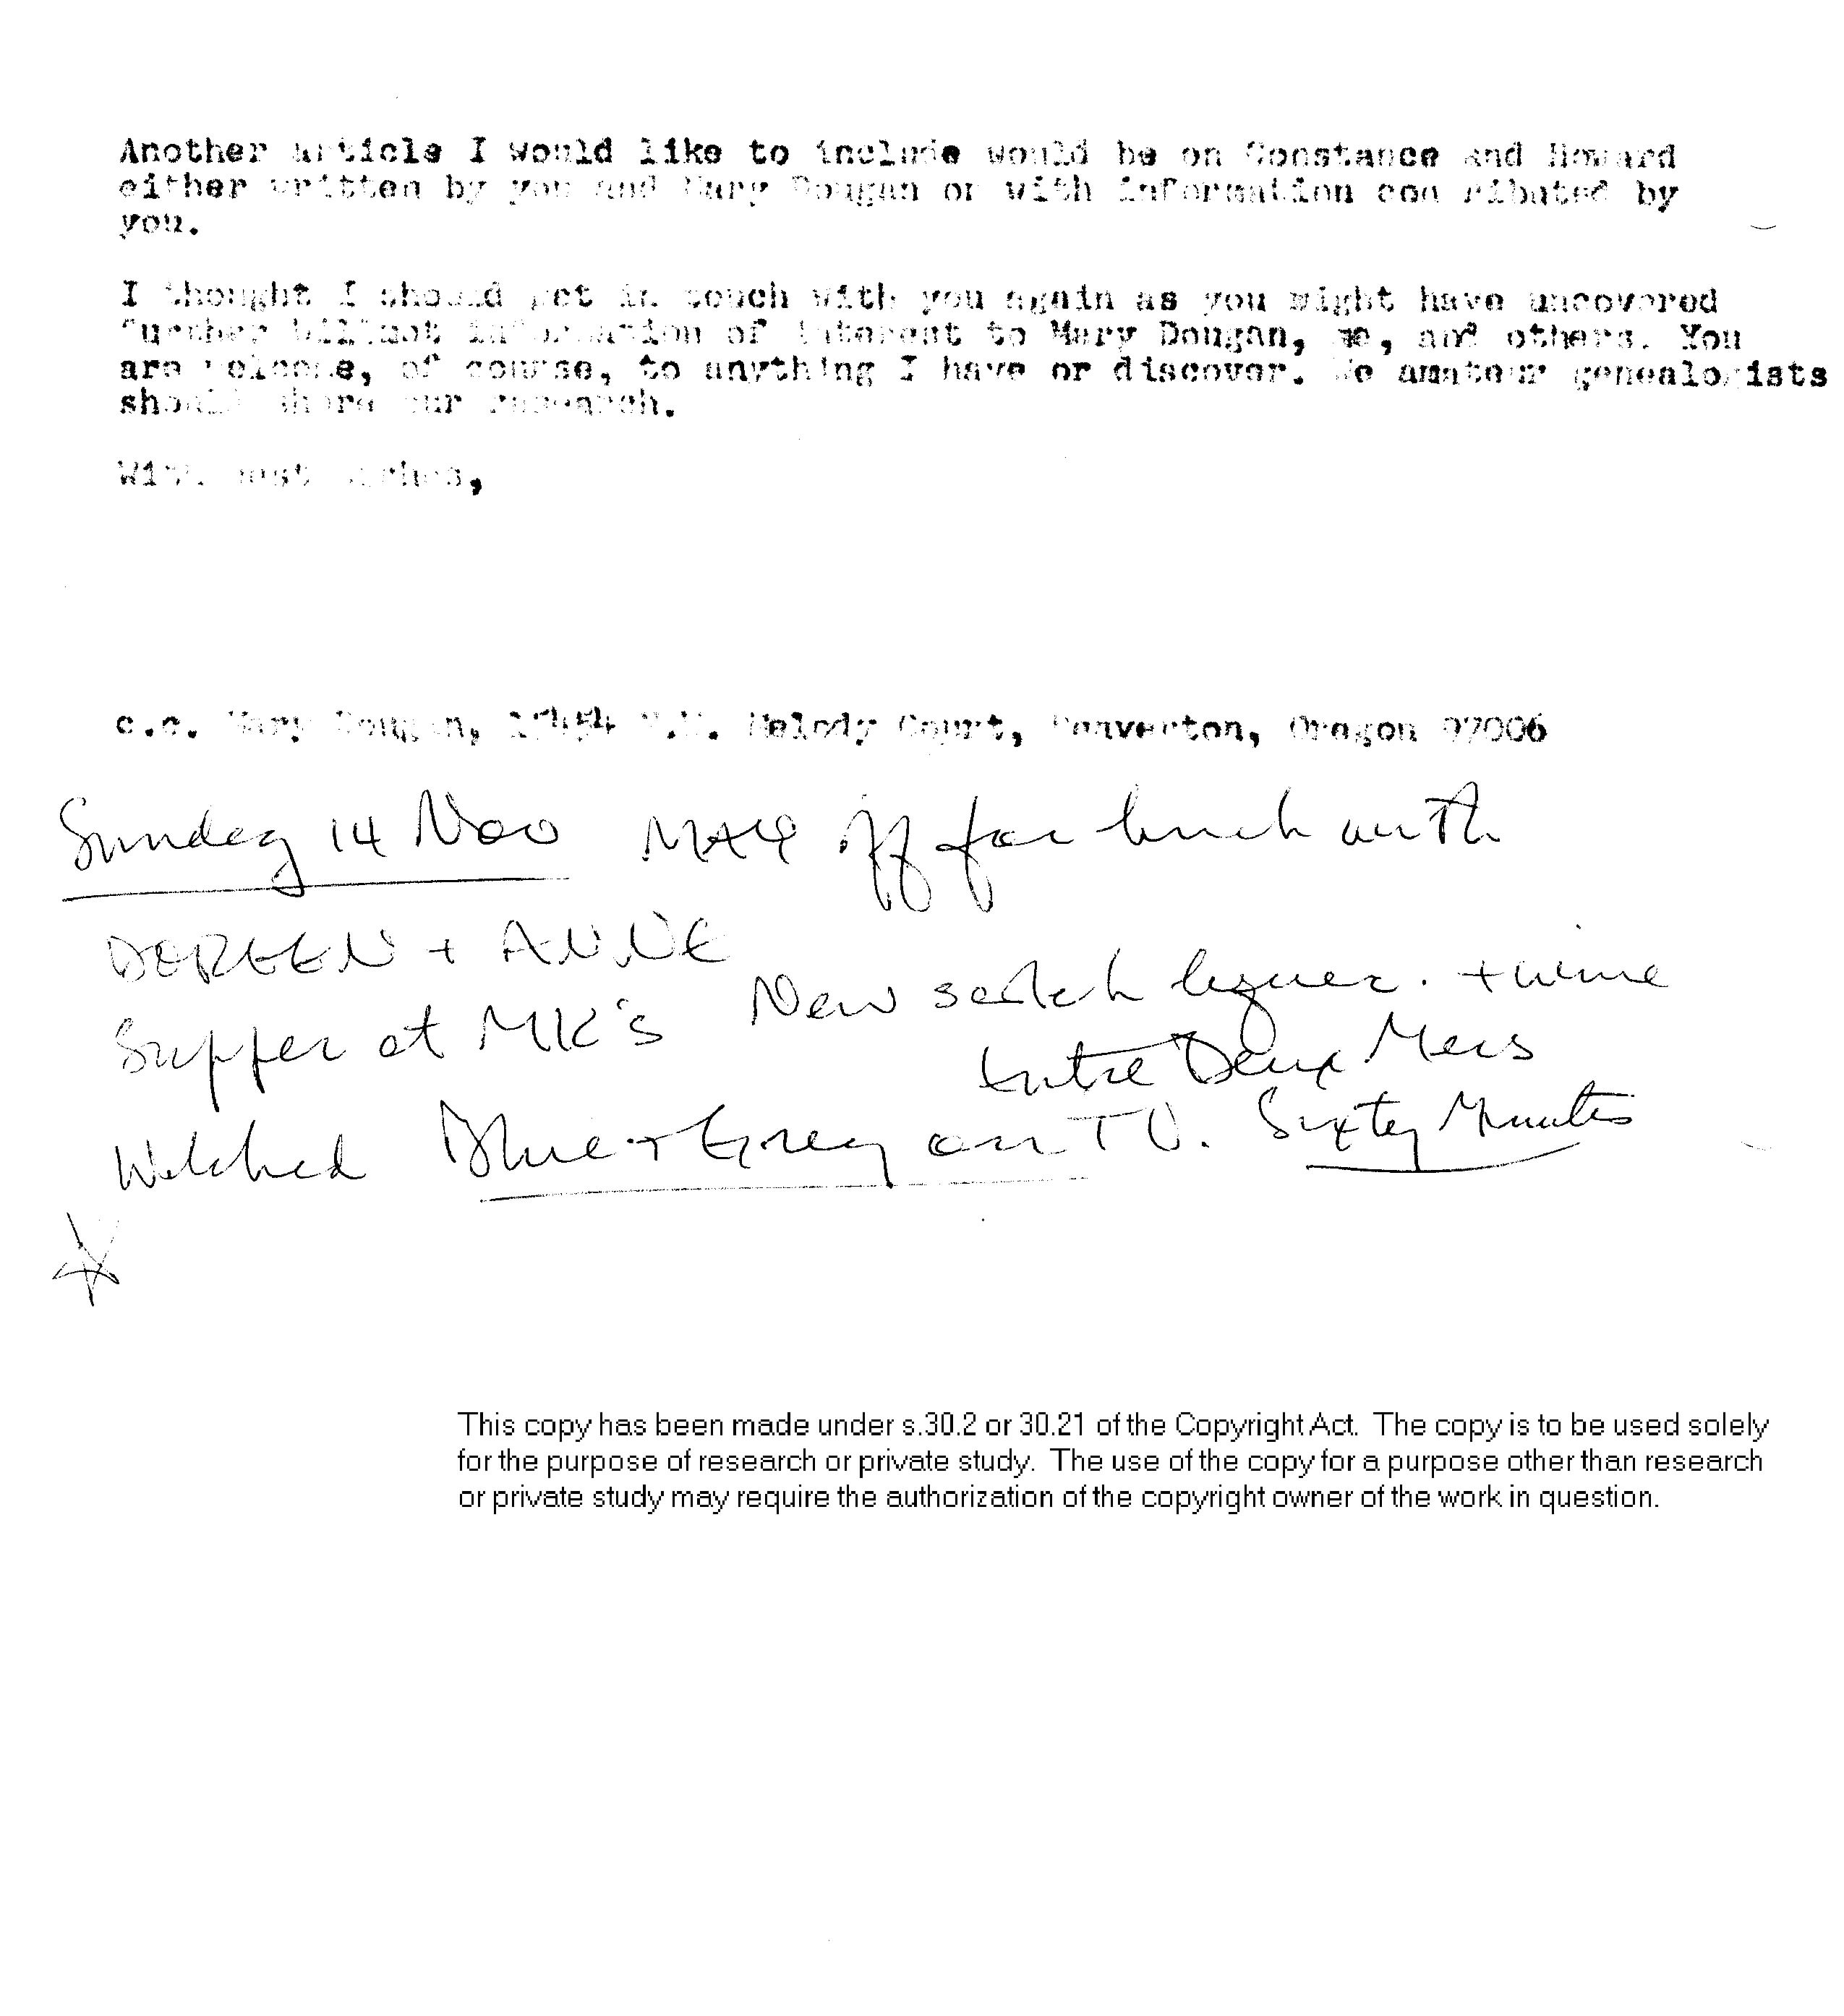 Another article I would like to include would be on Constance and Howard
either written by you and Mary Dougan or with information con ributed by
you.
I thought I should get in touch with you again as you might have uncovered
further information of interest to Mary Dougan, me, and others. You
are welcome, of course, to anything I have or discover. We amateur genealogists
should share our research.
With best wishes,
c.c. Mary Dougan, Melody Court, Beaverton, Oregon 97006
Sunday 14 Nov off for lunch with
DOREEN + ANNE
Supper at MK's New scotch + wine
Entre Deux Mers
Watched Blue + Grey on TV. Sixty Minutes
This copy has been made under s.30.2 or 30.21 of the Copyright Act. The copy is to be used solely
for the purpose of research or private study. The use of the copy for a purpose other than research
or private study may require the authorization of the copyright owner of the work in question.